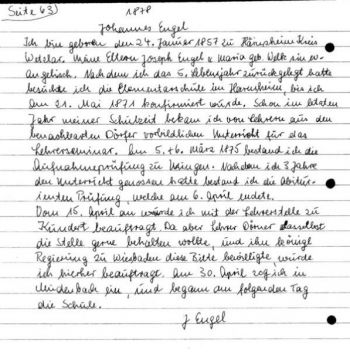 Seite 43) 1878
Johannes Engel
Ich bin geboren den 24. Januar 1857 zu Kreis
Wetzlar. Meine Eltern Joseph Engel u. Maria geb. sin ev-
angelisch. Nachdem ich das 5. Lebensjahr zurückgelegt hatte
besuchte ich die Elementarschule in bis ich
am 21. Mai 1871 konfirmiert wurde. Schon im letzten
Jahr meiner Schulzeit bekam ich von Lehrern aus den
benachbarten Dörfer vorbildlichen Unterricht für das
Lehrerseminar. Am 5. + 6. März 1875 bestand ich die
Aufnahmeprüfung zu Usingen. Nachdem ich 3 Jahre
den Unterricht genossen hatte bestand ich die Abitur-
ienten Prüfung, welche am 6. April endete.
Vom 15. April an wurde ich mit der Lehrerstelle zu
Hundert beauftragt. Da aber Lehrer Dörner daselbst
die Stelle gerne behalten wollte, und ihm königl
Regierung zu Wiesbaden diese Bitte bewilligte, wurde
ich hierher beauftragt. Am 30. April zog ich in
Mudenbach ein, und begann am folgenden Tag
die Schule.
J Engel